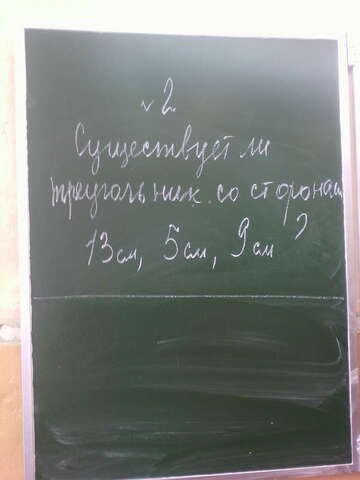 v 2.
Существует ли
треугольник со сторонами
13 см, 5 см, 9 см ?